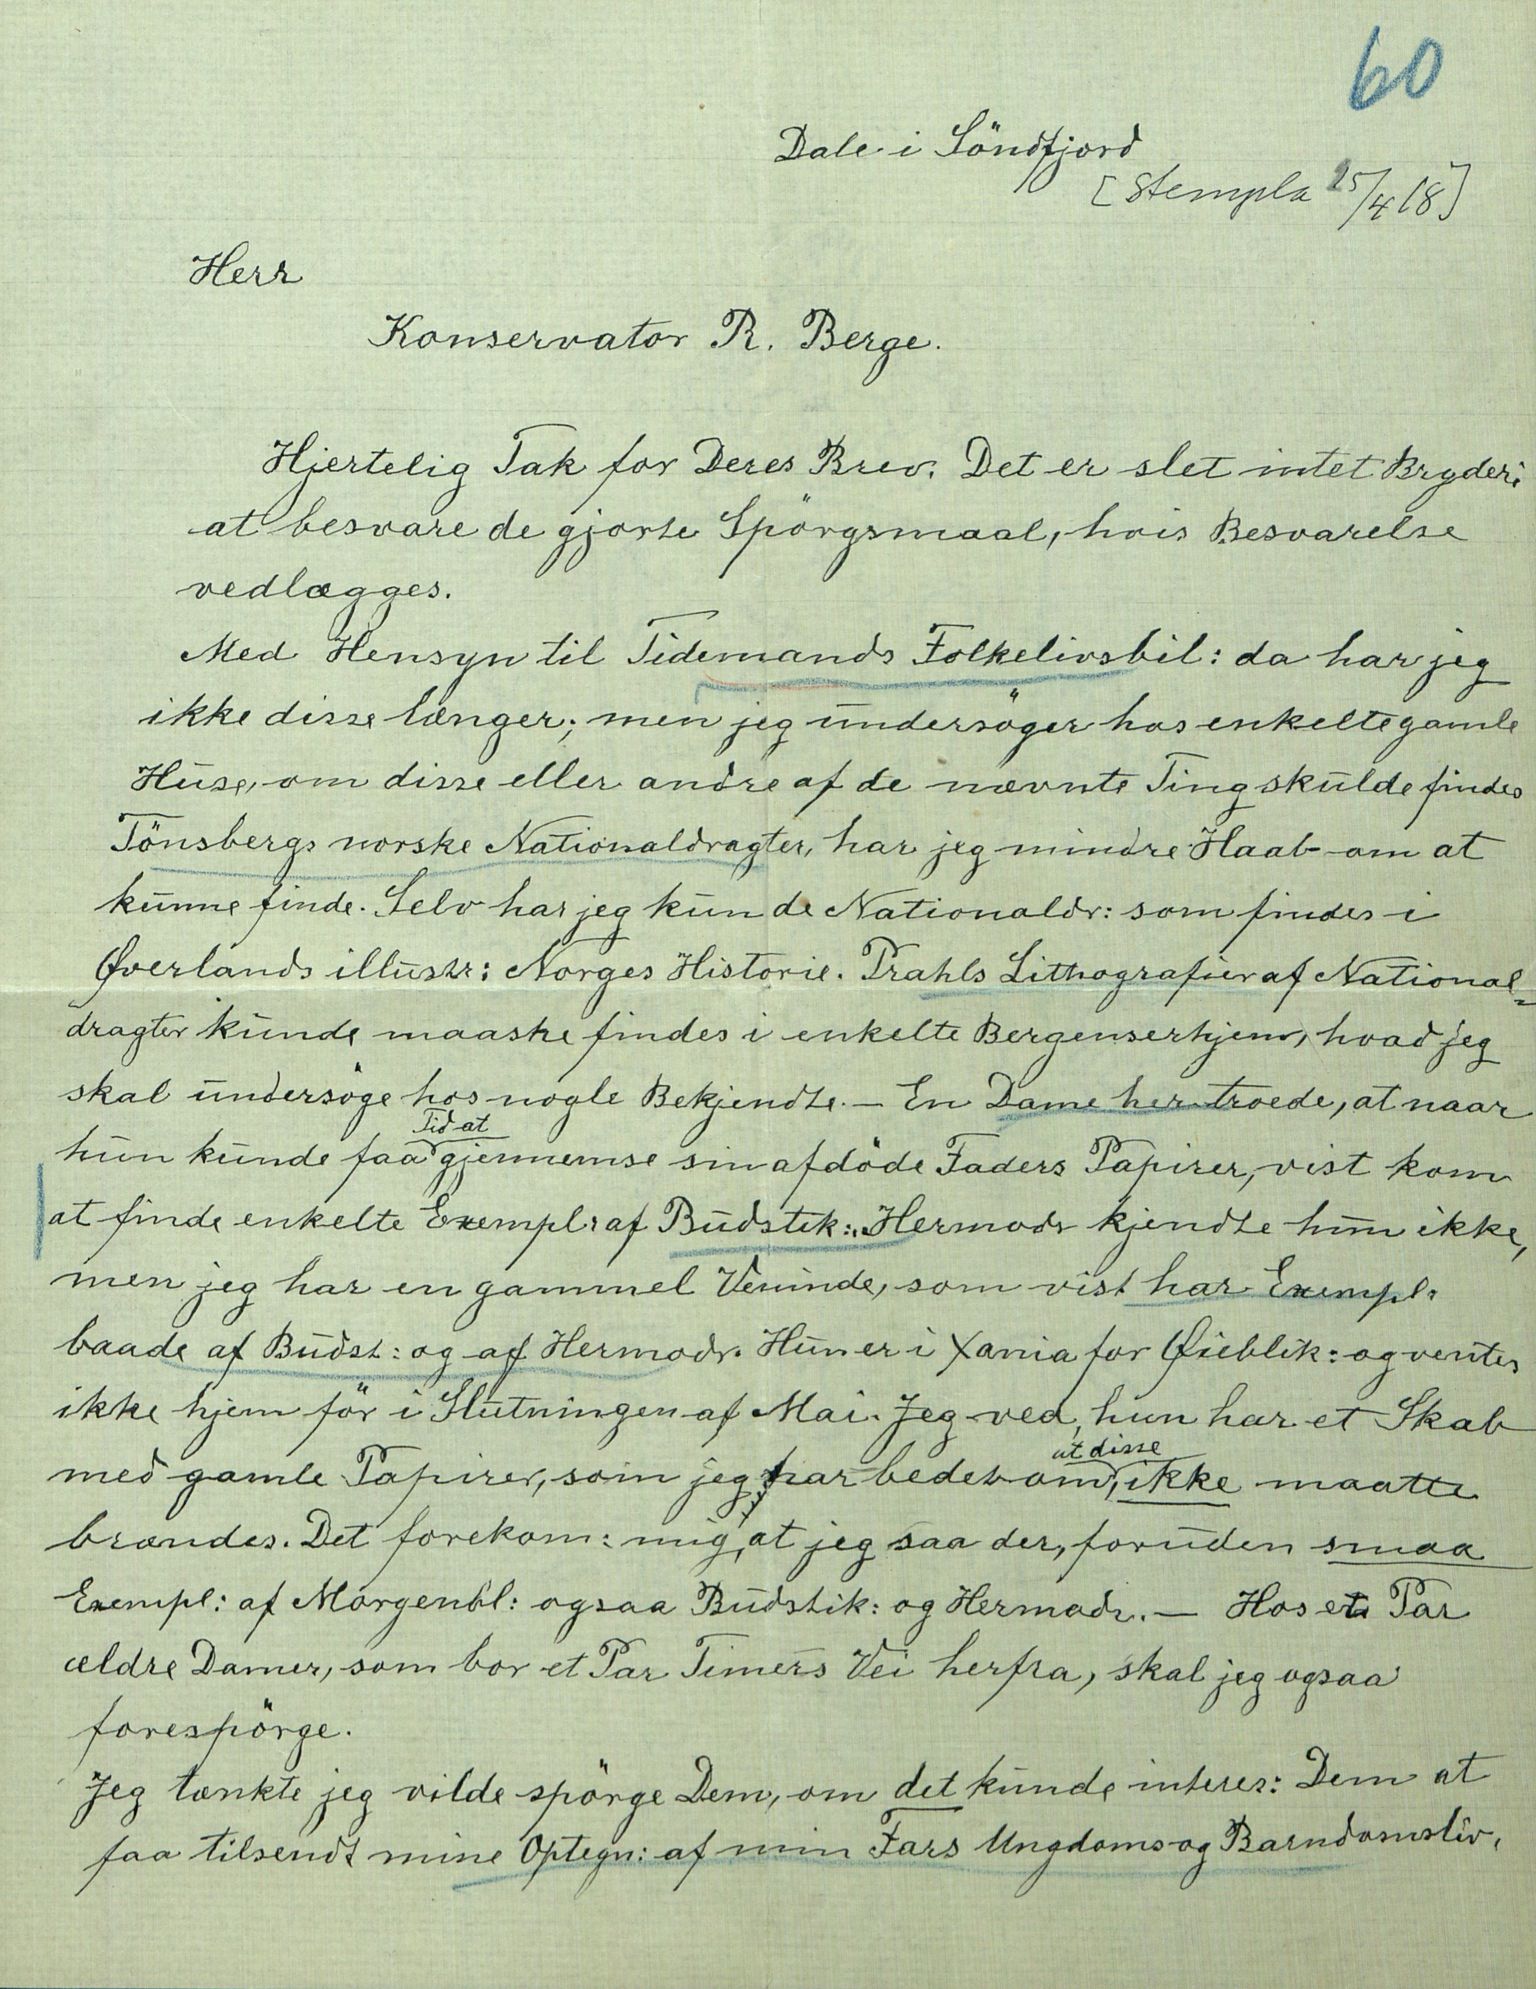 60
Dale i Söndfjord
[Stempla 25/4 18]
Herr
Konservator R. Berge.
Hjertelig Tak for Deres Brev. Det er slet intet Bryderi
at besvare de gjorte Spörgsmaal, hvis Besvarelse
vedlægges.
Med Hensyn til Tidemands Folkelivsbil: da har jeg
ikke disse længer; men jeg undersöger hos enkelte gamle
Huse, om disse eller andre af de nævnte Ting skulde findes
Tönsbergs norske Nationaldragter, har jeg mindre Haab om at
kunne finde. Selv har jeg kun de Nationaldr: som findes i
Øverlands illustr: Norges Historie. Prahls Lithografier af National-
dragter kunde maaske findes i enkelte Bergenserhjem, hvad jeg
skal undersöge hos nogle Bekjendte. — En Dame her troede, at naar
Tid at
hun kunde faa gjennemse sin afdöde Faders Papirer, vist kom
at finde enkelte Exempl: af Budstik: Hermodr kjendte hun ikke,
men jeg har en gammel Veninde, som vist har Exempl:
baade af Budst: og af Hermodr. Hun er i Xania for Øieblik: og ventes
ikke hjem för i Slutningen af Mai. Jeg ved, hun har et Skab
at disse
med gamle Papirer, som jeg har bedet om, ikke maatte
brændes. Det forekom: mig, at jeg saa der, foruden smaa
Exempl: af Morgenbl: ogsaa Budstik: og Hermodr. — Hos et Par
ældre Damer, som bor et Par Timers Vei herfra, skal jeg ogsaa
forespörge.
Jeg tænkte jeg vilde spörge Dem, om det kunde interes: Dem at
faa tilsendt mine Optegn: af min Fars Ungdoms og Barndomsliv.